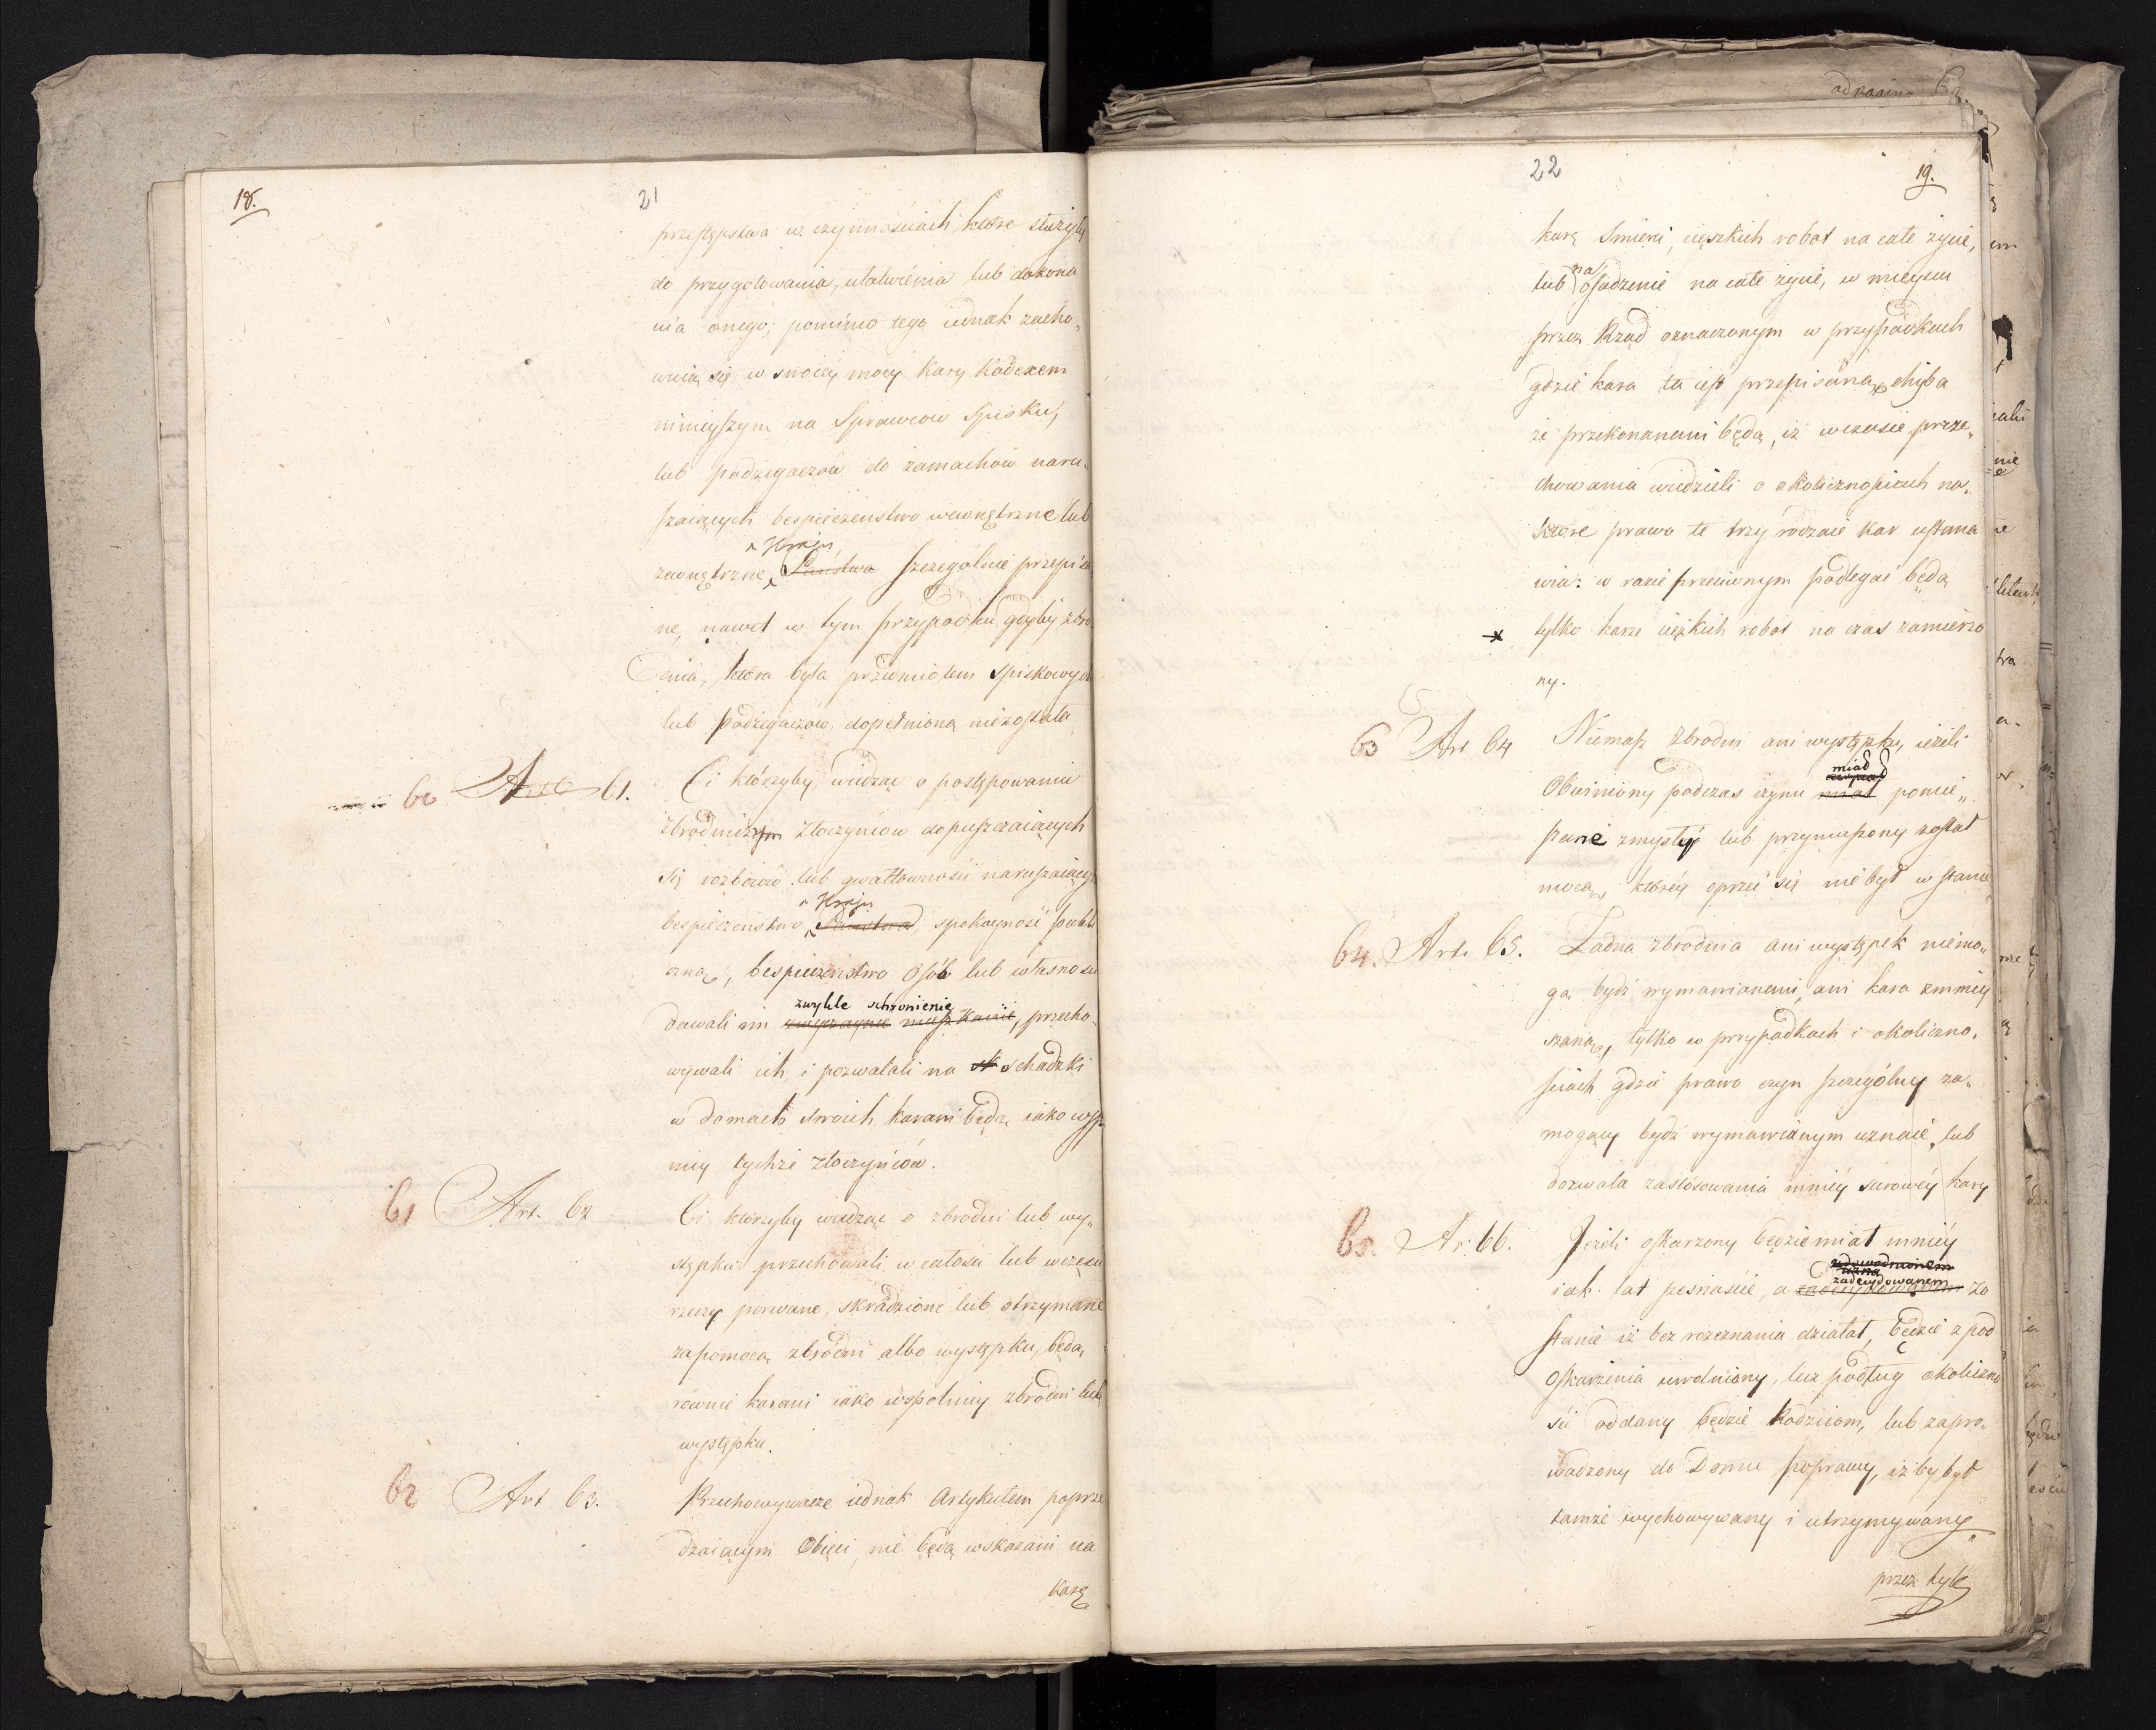 18.
21
przestępstwa w czynnościach które służyły
do przygotowania, ułatwienia lub dokona
nia onego; pomimo tego iednak zacho„
wuią się w swoiey mocy kary Kodexem
ninieyszym na Sprawców Spisku,
lub podżegaczów do zamachów naru„
szaiących bespieczenstwo wewnętrzne lub
^ Kraju
zewnętrzne, Państwa szczególnie przepisa
ne, nawet w tym przypadku gdyby zbro
dnia, która była przedmiotem spiskowych
lub podżegaczów dopełnioną niezostała
60 Art 61. Ci którzyby wiedząc o postępowaniu
zbrodniczym złoczyńców dopuszczaiących
się rozboiów lub gwałtowności naruszaiących
^ Kraju
bespieczenstwo, Panstwa, spokoyność publi
czną, bespieczeństwo Osób lub własności
zwykłe schronienie
dawali im zwyczayne mieszkanie, przecho„
wywali ich, i pozwalali na sk schadzki
w domach swoich, karani będą iako wspól
nicy tychże złoczyńców.
61 Art. 62 Ci którzyby wiedząc o zbrodni lub wy„
stępku przechowali w całości lub w części
rzeczy porwane, skradzione lub otrzymane
zapomocą zbrodni albo występku, będą
równie karani iako wspolnicy zbrodni lub
występku.
62 Art 63. Przechowywacze iednak Artykułem poprze
dzaiącym Obięci, nie będą wskazani na
karę
22
19.
karę śmierci, cięszkich robot na całe życie,
na
lub osadzenie na całe życie, w mieyscu
przez Rząd oznaczonym w przypadkach
gdzie kara ta iest przepisana, chyba
że przekonanemi będą, iż wczasie prze„
chowania wiedzieli o okolicznościach na„
które prawo te trzy rodzaie kar ustana
wia: w razie przeciwnym podlegać będą
tylko karze ciężkich robot na czas zamierzo
ny.
63 Art 64 Niemasz zbrodni ani występku, ieżeli
miał
Obwiniony podczas czynu miał pomie„
szane zmysły lub przymuszony został
mocą, któréy oprzeć się niebył w stanie
64. Art. 65. Żadna zbrodnia ani występek niemo„
gą bydź wymawianemi, ani kara zmniey
szaną, tylko w przypadkach i okoliczno„
ściach gdzie prawo czyn szczególny za„
mogący bydź wymawianym uznaie, lub
dozwala zastósowania mniéy surowéy kary
65. Ar. 66. Jeżeli oskarzony będzie miał mniéy
udowodnionem
zadecydowanem
iak lat szesnaście, a zadecydowanem zo
stanie iż bez rozeznania działał, będzie z pod
Oskarżenia uwolniony, lecz podług okoliczno
ści oddany będzie Rodzicom, lub zapro„
wadzony do Domu poprawy, iżby był
tamże wychowywany i utrzymywany„
przez tyle